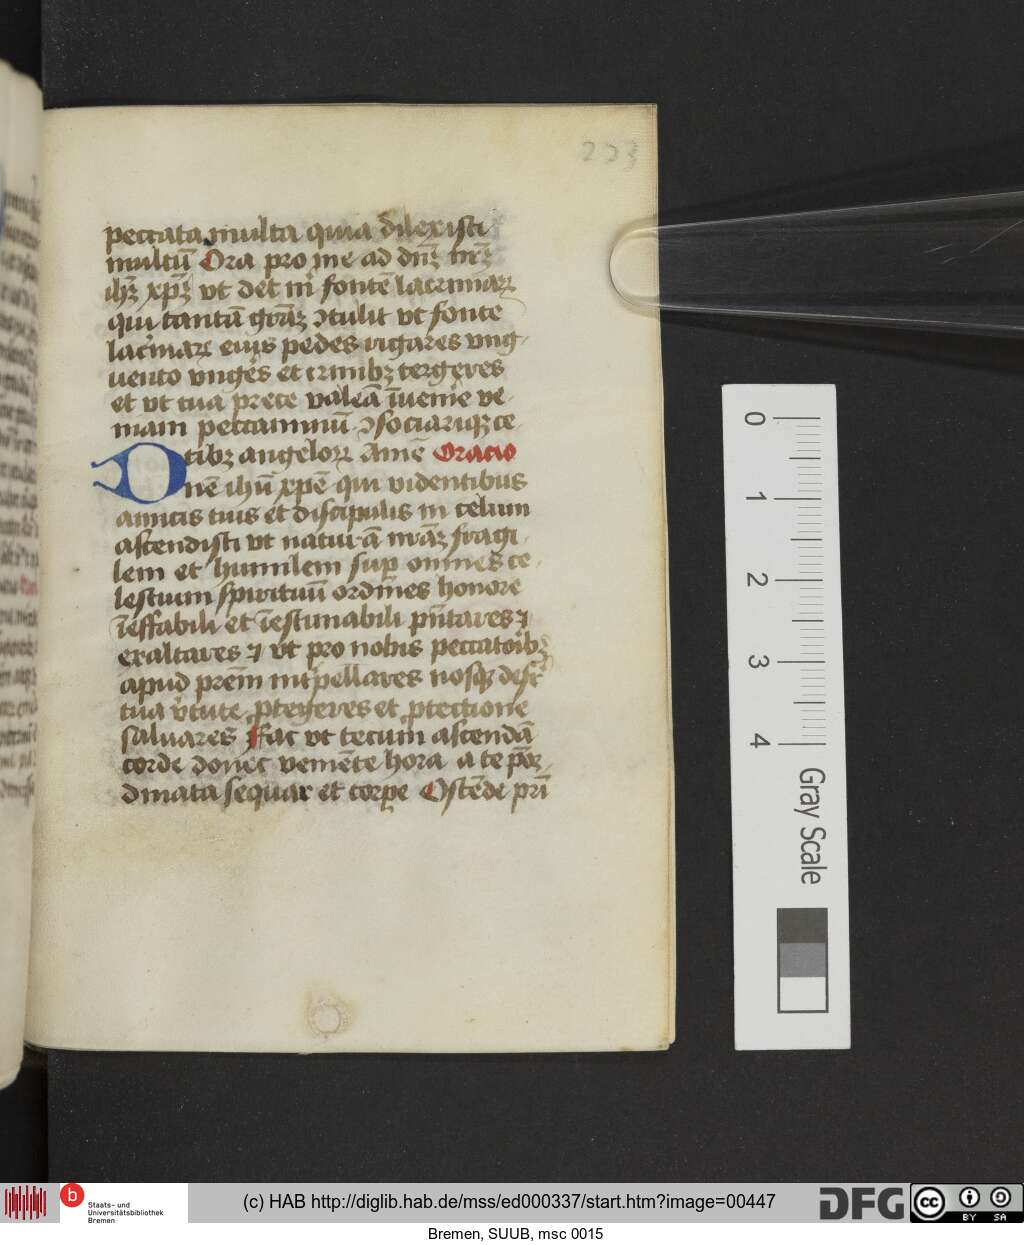 223
peccata multa quia dilexisti
multū Ora pro me ad dn̄ꝫ nr̄ꝫ
ihꝫ xp̄ꝫ vt det m̄ fontē lacrimaꝝ
qui tantā gr̄aꝫ ↄtulit vt fonte
lac̓maꝝ eius pedes rigares vng-
uento vnge̓s et crinibꝫ tergeres
et vt tua prece valeā īuenire ve-
niam peccaminū ↄsociariqꝫ ce-
tibꝫ angeloꝝ Amē Oracio
Dnē ihū xp̄e qui videntibus
amicis tuis et discipulis in celum
ascendisti vt naturā nr̄aꝫ fragi-
lem et humilem suꝑ omnes ce-
lestium spirituū ordines honore
īeffabili et īestimabili pn̄tares ⁊
exaltares ⁊ vt pro nobis peccatoribꝫ
apud pr̄em int̓pellares nosqꝫ
tua v̓tute ꝓtegeres et ꝓtectione
saluares Fac vt tecum ascendā
corde donec veniēte hora a te
dinata sequar et corꝑe Ostēde pr̄i
0
1
2
3
4
Gray Scale
b
Staats- und
Universitätsbibliothek
Bremen
(c) HAB http://diglib.hab.de/mss/ed000337/start.htm?image=00447
DFG
cc
BY SA
Bremen, SUUB, msc 0015